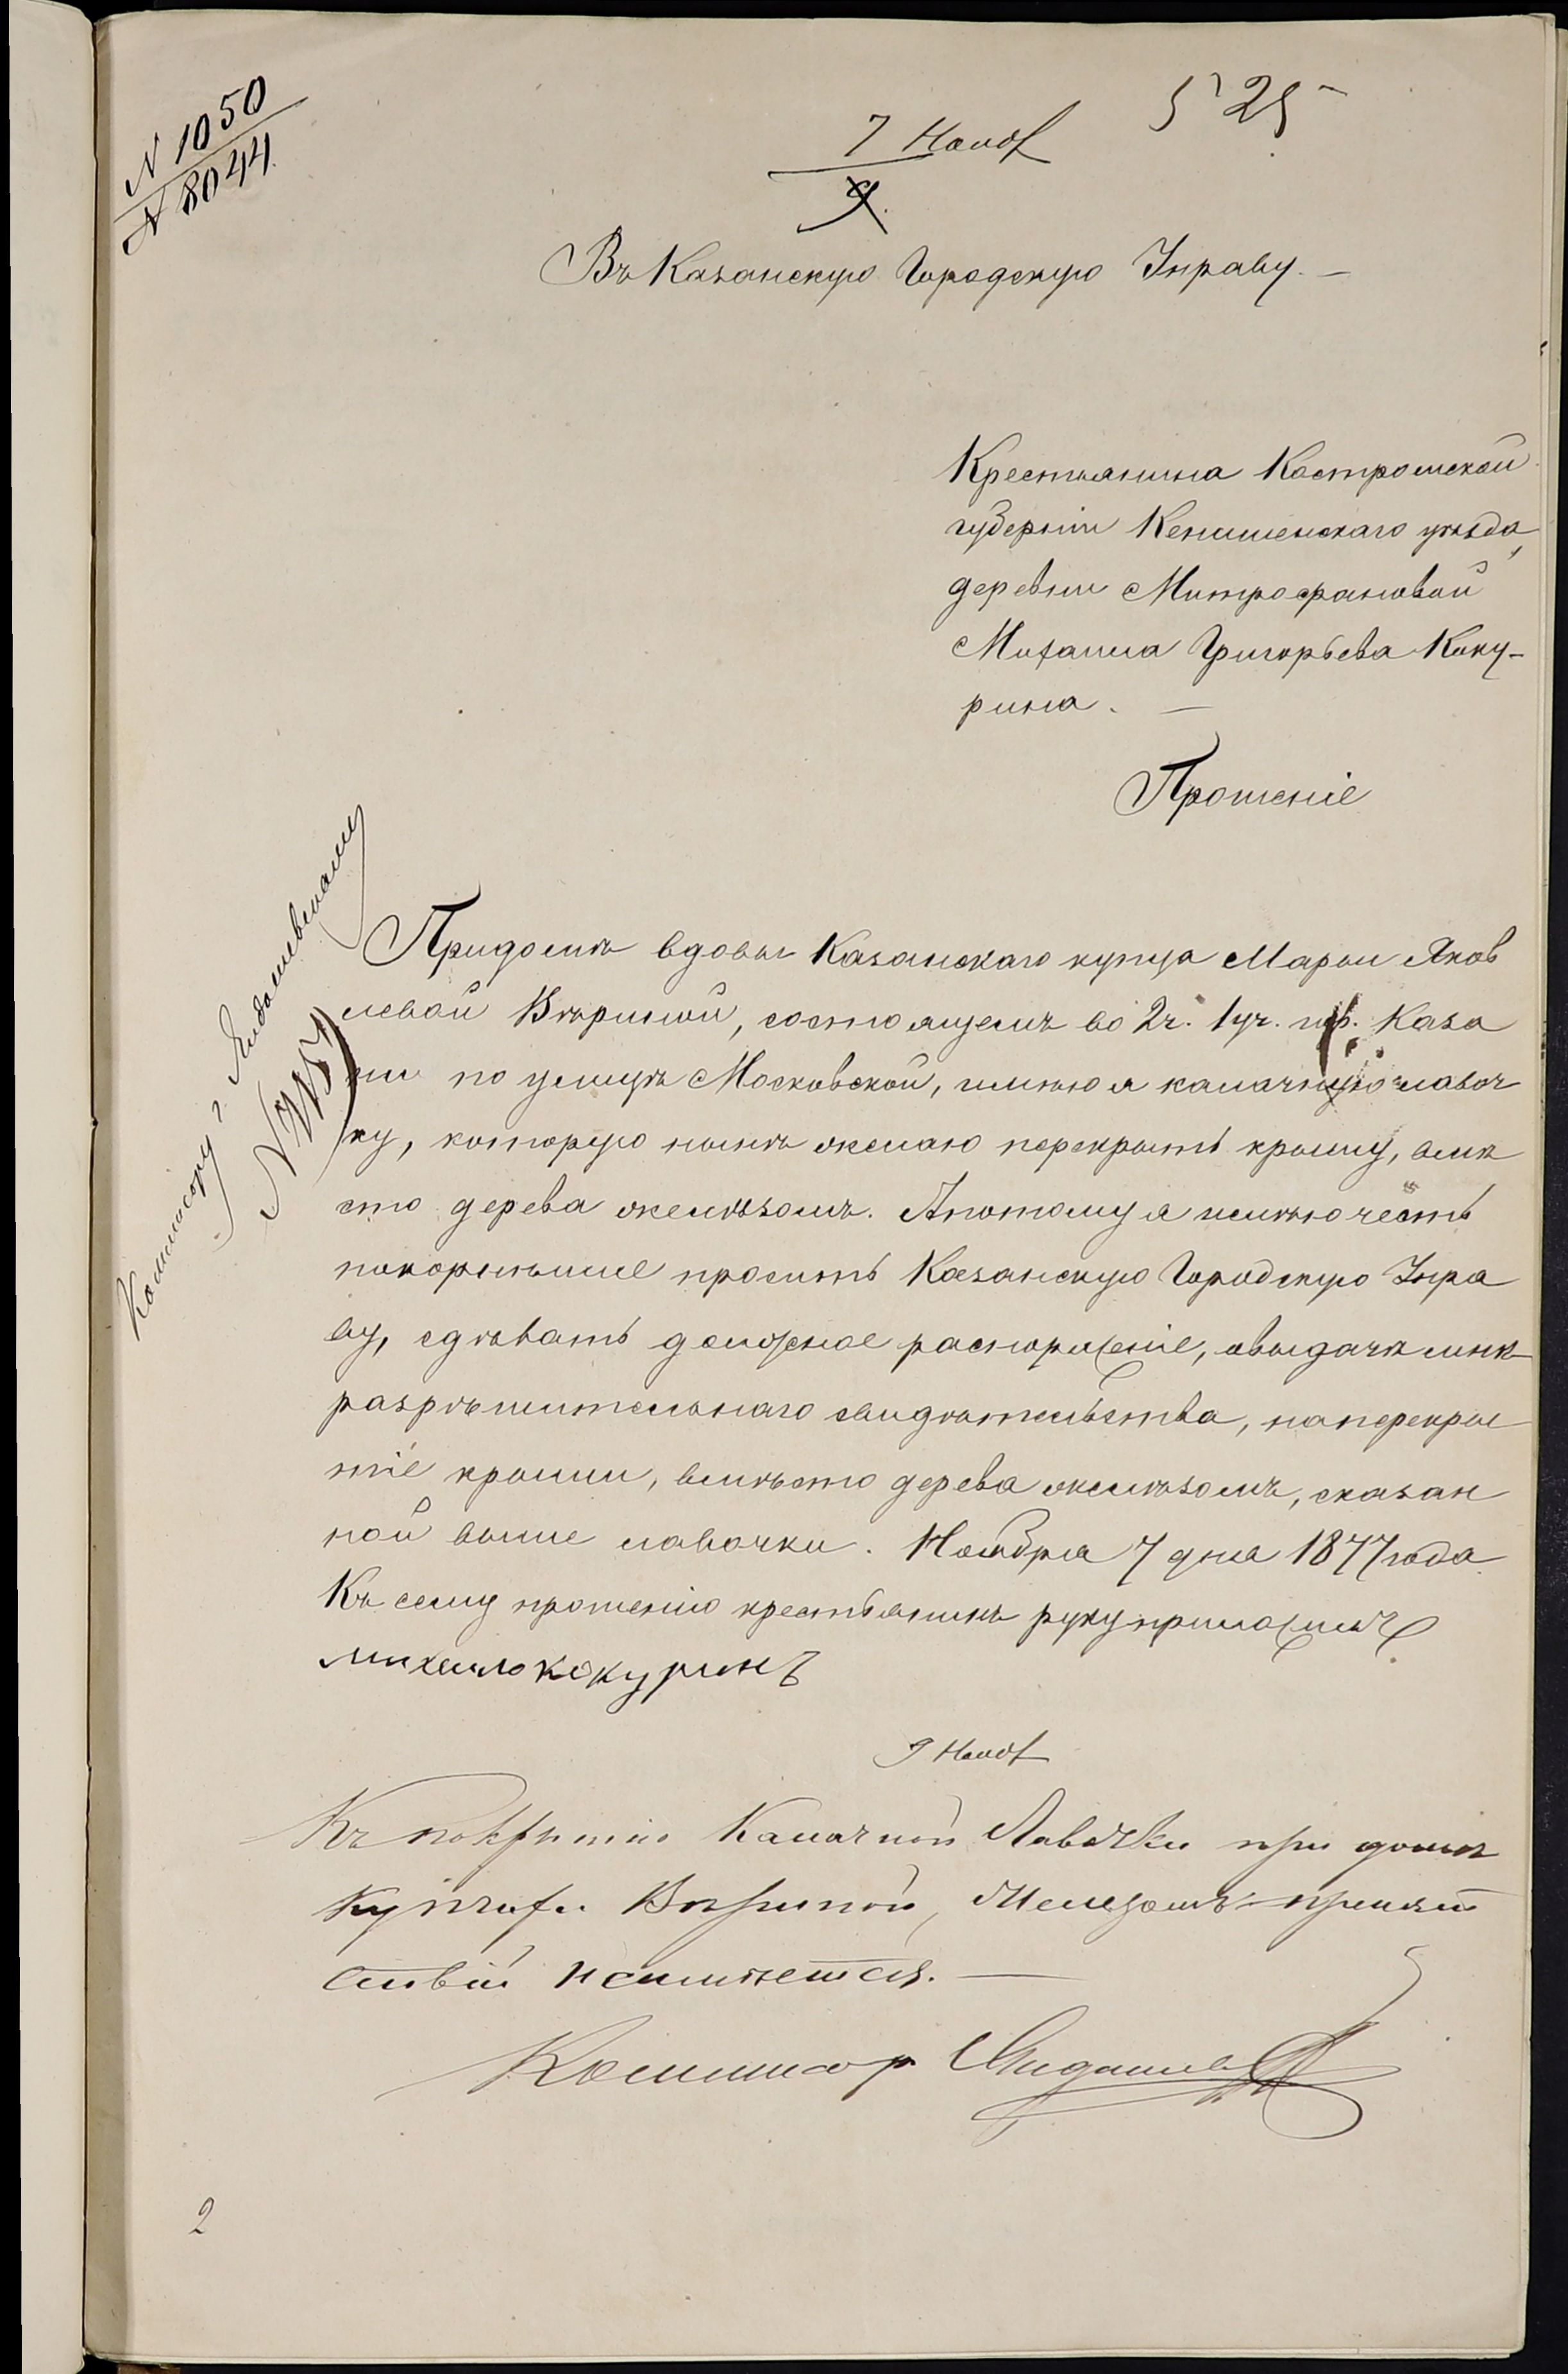 N 1050
N 8044.
525
7 Нояб
9.
Въ Казанскую Городскую Управу. —
Крестьянина Костромской
губерніи Кенишемскаго уѣзда,
деревни Митрофановой
Михаила Григорьева Коку-
рина. —
Прошеніе
Комисору г.
Придомѣ вдовы Казанскаго купца Марьи Яков
левой Вѣриной, состоящемъ во 2 ч. 1 уч. гор. Каза
ни по улицѣ Московской, имѣю я калачную лавоч
ку, которую нынѣ желаю перекрыть крышу, вмѣ
сто дерева желѣзомъ. Апотому я имѣю честь
покорнѣйше просить Казанскую Городскую Упра
ву, сдѣвать должное распоряженіе, овыдачѣ мнѣ
разрѣшительнаго свидѣтельства, наперекры
тіе крыши, вмѣсто дерева желѣзомъ, сказан
ной выше лавочки. Ноября 7 дня 1877 года.
Къ сему прошенію крестьянинъ руку приложилъ
михаило кокуринъ
9 Нояб
Къ покрытію Калачной Лавочки при домѣ
Купчихи Вѣриной, Желѣзомъ препят
ствій неимѣется. —
Коммисор
2